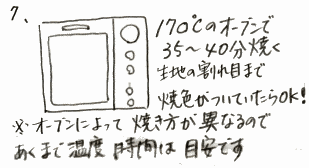 7、
170℃のオーブンで
35〜40分焼く
生地の割れ目まで
焼色がついていたらOK!
※オーブンによって 焼き方が異なるので
あくまで温度 時間は目安です